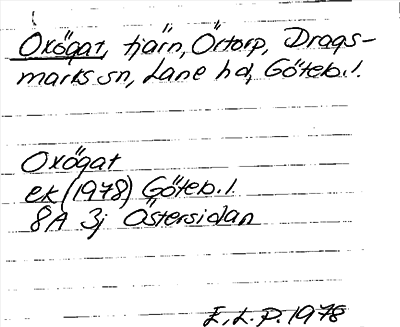 Oxögat, tjärn, Örtorp, Drags-
marks sn, Lane hd, Göteb. l.
Oxögat
ek (1978) Göteb. l.
8A 3j Östersidan
E. L. P. 1978